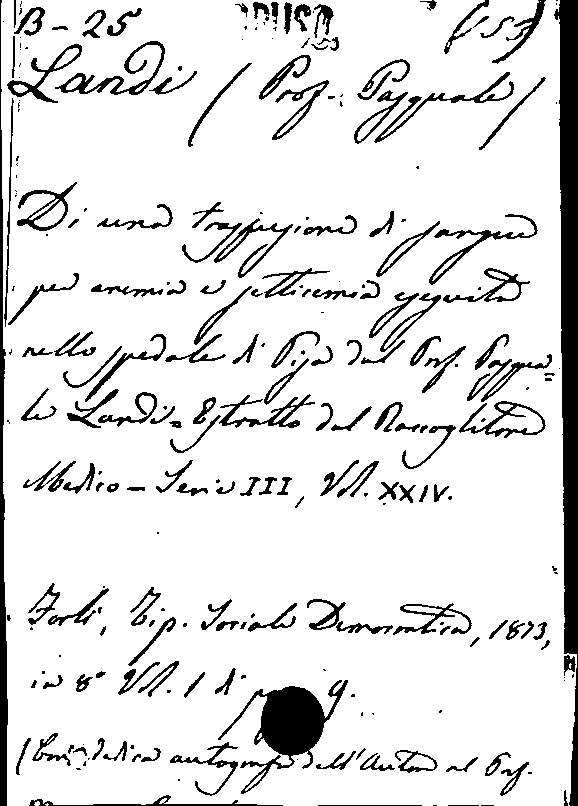 B-25 (153)
Landi (Prof. Pasquale)
Di una trasfusione di sangue
per anemia e setticemia eseguita
nello spedale di Pisa dal Prof. Pasqua=
le Landi = Estratto dal Raccoglitore
Medico - Serie III, Vol. XXIV.
Forlì, Tip. Sociale Democratica, 1873,
in 8° Vol. 1 di 9.
(Con dedica autografa dell'Autore al Prof.